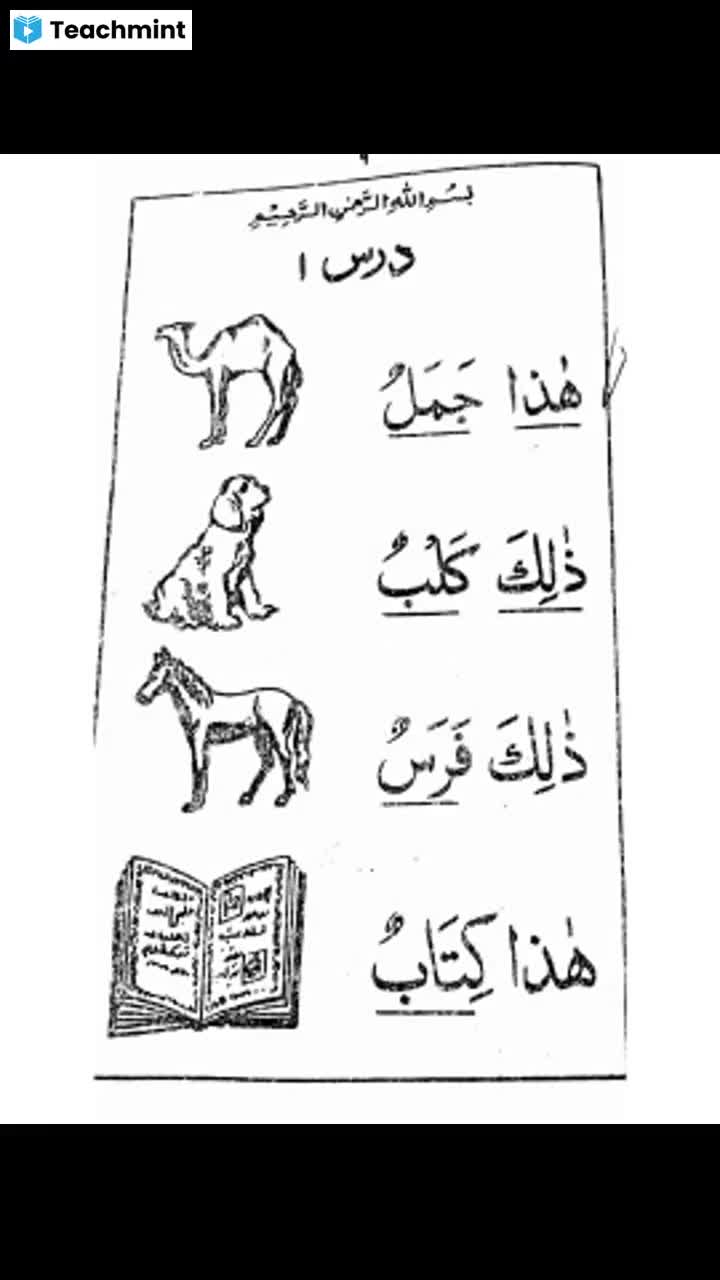 Teachmint
٩
بِسْمِ اللهِ الرَّحْمٰنِ الرَّحِيْمِ
درس ١
هٰذا جَمَلٌ
ذٰلِكَ كَلْبٌ
ذٰلِكَ فَرَسٌ
هٰذا كِتَابٌ